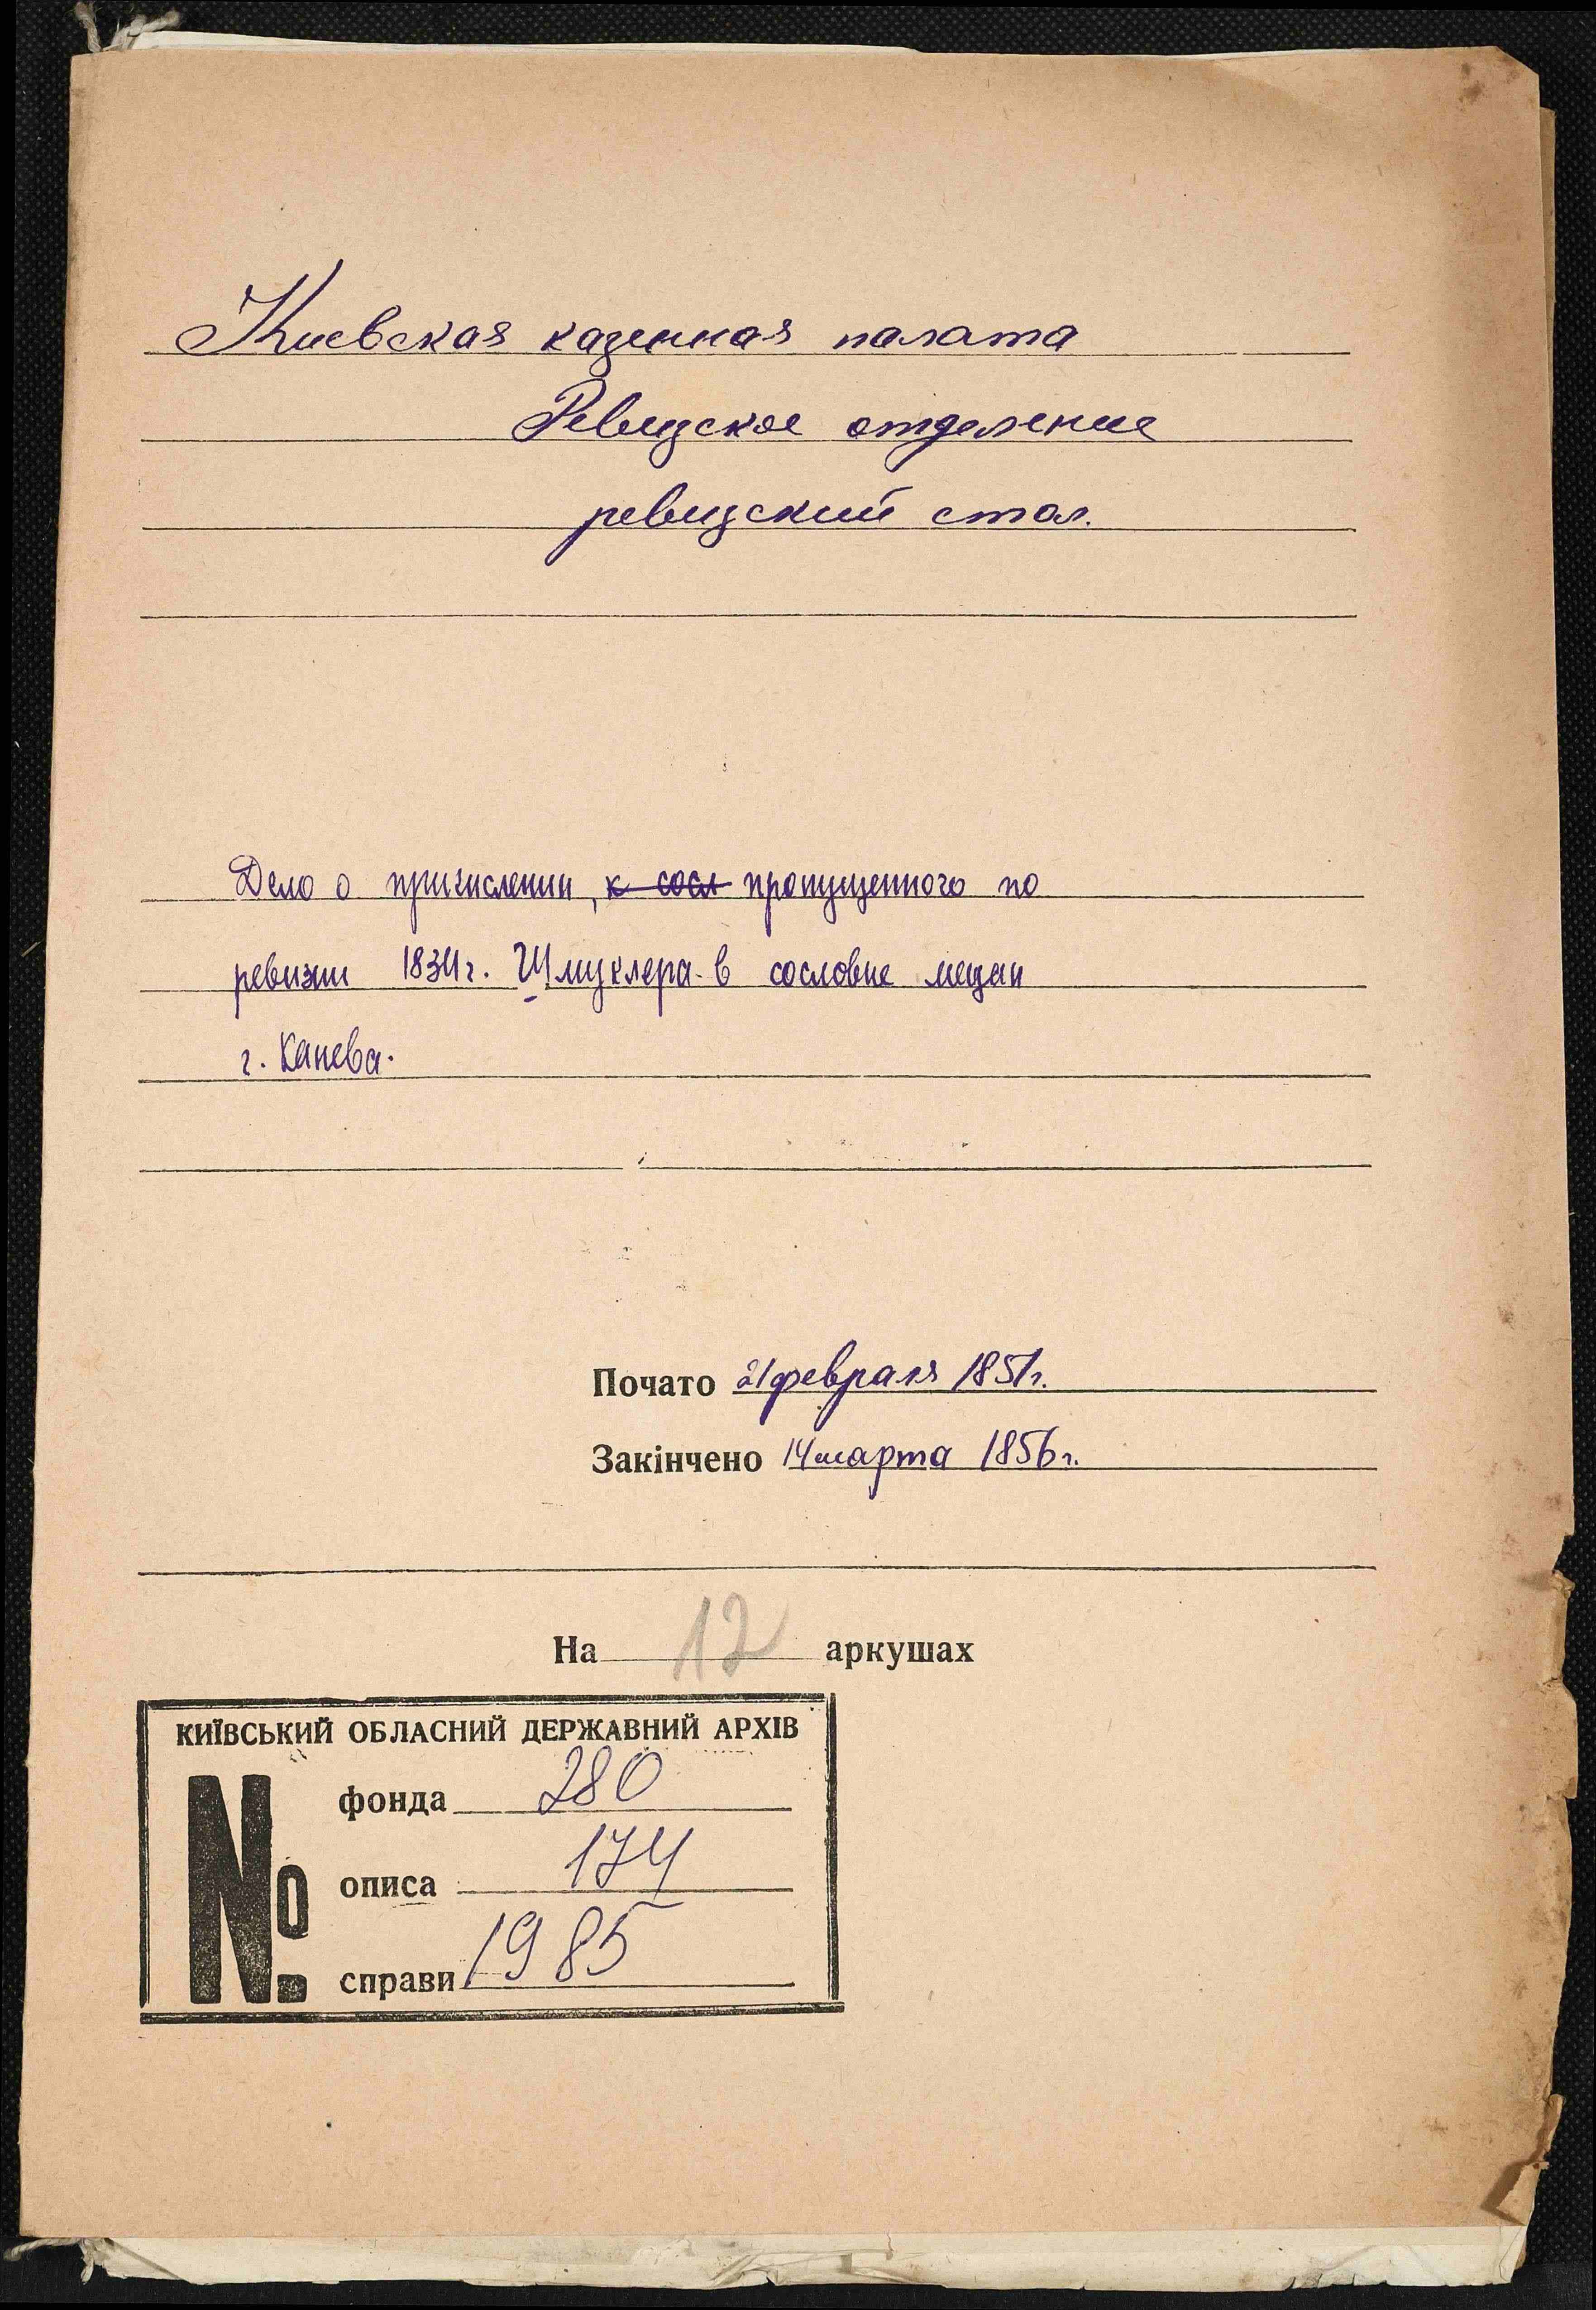 Киевская казенная палата
Ревизское отделение
ревизский стол.
Дело о причислении, к сосл пропущенного по
ревизии 1834г. Шмуклера в сословие мещан
г. Канева.
Почато 21 февраля 1851г.
Закінчено 14 марта 1856г.
На 12 аркушах
КИЇВСЬКИЙ ОБЛАСНИЙ ДЕРЖАВНИЙ АРХІВ
№
фонда 280
описа 174
справи 1985